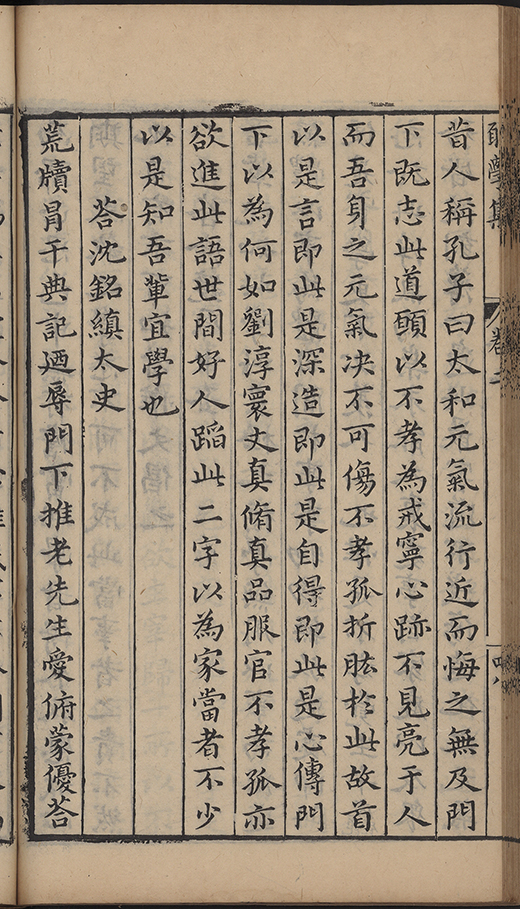 學集
卷二
昔人稱孔子曰太和元氣流行近而悔之無及門
下既志此道願以不孝為戒寧心跡不見亮于人
而吾身之元氣决不可傷不孝孤折肱於此故首
以是言即此是深造即此是自得即此是心傳門
下以為何如劉淳寰丈真脩真品服官不孝孤亦
欲進此語世間好人蹈此二字以為家當者不少
以是知吾輩宜學也
荅沈銘縝太史
荒牘冐干典記廼辱門下推老先生愛俯蒙優荅